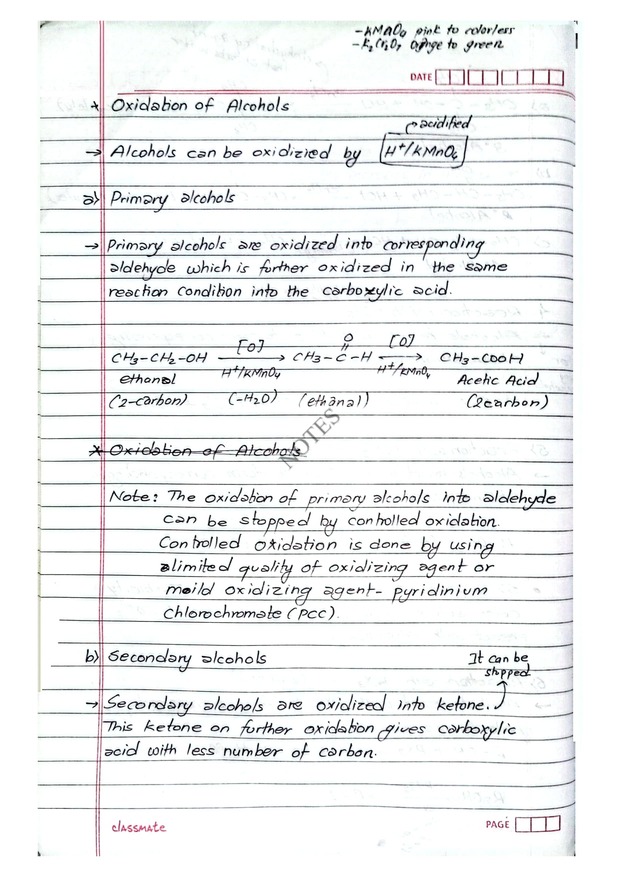 -KMnO4 pink to colorless
-K2Cr2O7 orange to green
DATE
* Oxidation of Alcohols
acidified
→ Alcohols can be oxidizied by H+/KMnO4
a) Primary alcohols
→ Primary alcohols are oxidized into corresponding
aldehyde which is further oxidized in the same
reaction condition into the carboxylic acid.
CH3-CH2-OH [O] H+/KMnO4 (-H2O) → CH3-C(=O)-H [O] H+/KMnO4 → CH3-COOH
ethanol Acetic Acid
(2-carbon) (ethanal) (2carbon)
* Oxidation of Alcohols
NOTES
Note: The oxidation of primary alcohols into aldehyde
can be stopped by controlled oxidation.
Controlled oxidation is done by using
alimited quality of oxidizing agent or
maild oxidizing agent- pyridinium
chlorochromate (PCC).
b) Secondary alcohols
It can be
stopped
→ Secondary alcohols are oxidized into ketone.
This ketone on further oxidation gives carboxylic
acid with less number of carbon.
classmate
PAGE